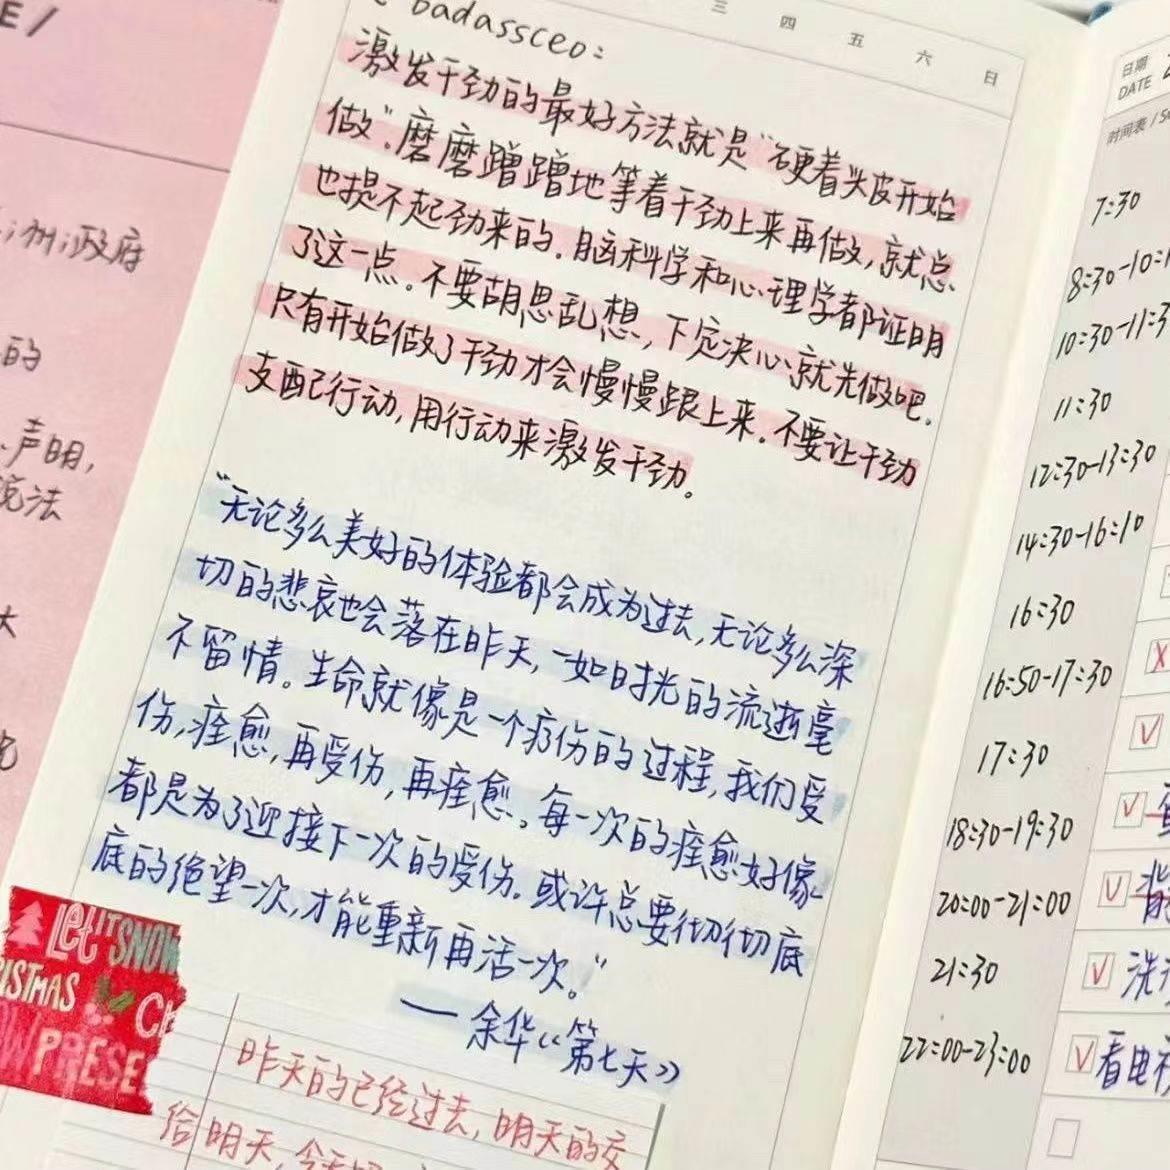 E/
;州;政府
的
声明,
说法
大
三 四 五 六 日
badassceo:
激发干劲的最好方法就是"硬着头皮开始
做".磨磨蹭蹭地等着干劲上来再做,就总
也提不起劲来的.脑科学和心理学都证明
了这一点.不要胡思乱想,下定决心就先做吧.
只有开始做了干劲才会慢慢跟上来.不要让干劲
支配行动,用行动来激发干劲。
"无论多么美好的体验都会成为过去,无论多么深
切的悲哀也会落在昨天,一如时光的流逝毫
不留情。生命就像是一个疗伤的过程,我们受
伤,痊愈,再受伤,再痊愈。每一次的痊愈好像
都是为了迎接下一次的受伤.或许总要彻彻底
底的绝望一次,才能重新再活一次。"
——余华《第七天》
Let IT SNOW
RISTMAS CH
OW PRESE
昨天的已经过去,明天的交
给明天,今天
日期
DATE
时间表/S
7:30
8:30-10:1
10:30-11:3
11:30
12:30-13:30
14:30-16:10
16:30
16:50-17:30
17:30
18:30-19:30
20:00-21:00
背
21:30
洗
22:00-23:00
看电视